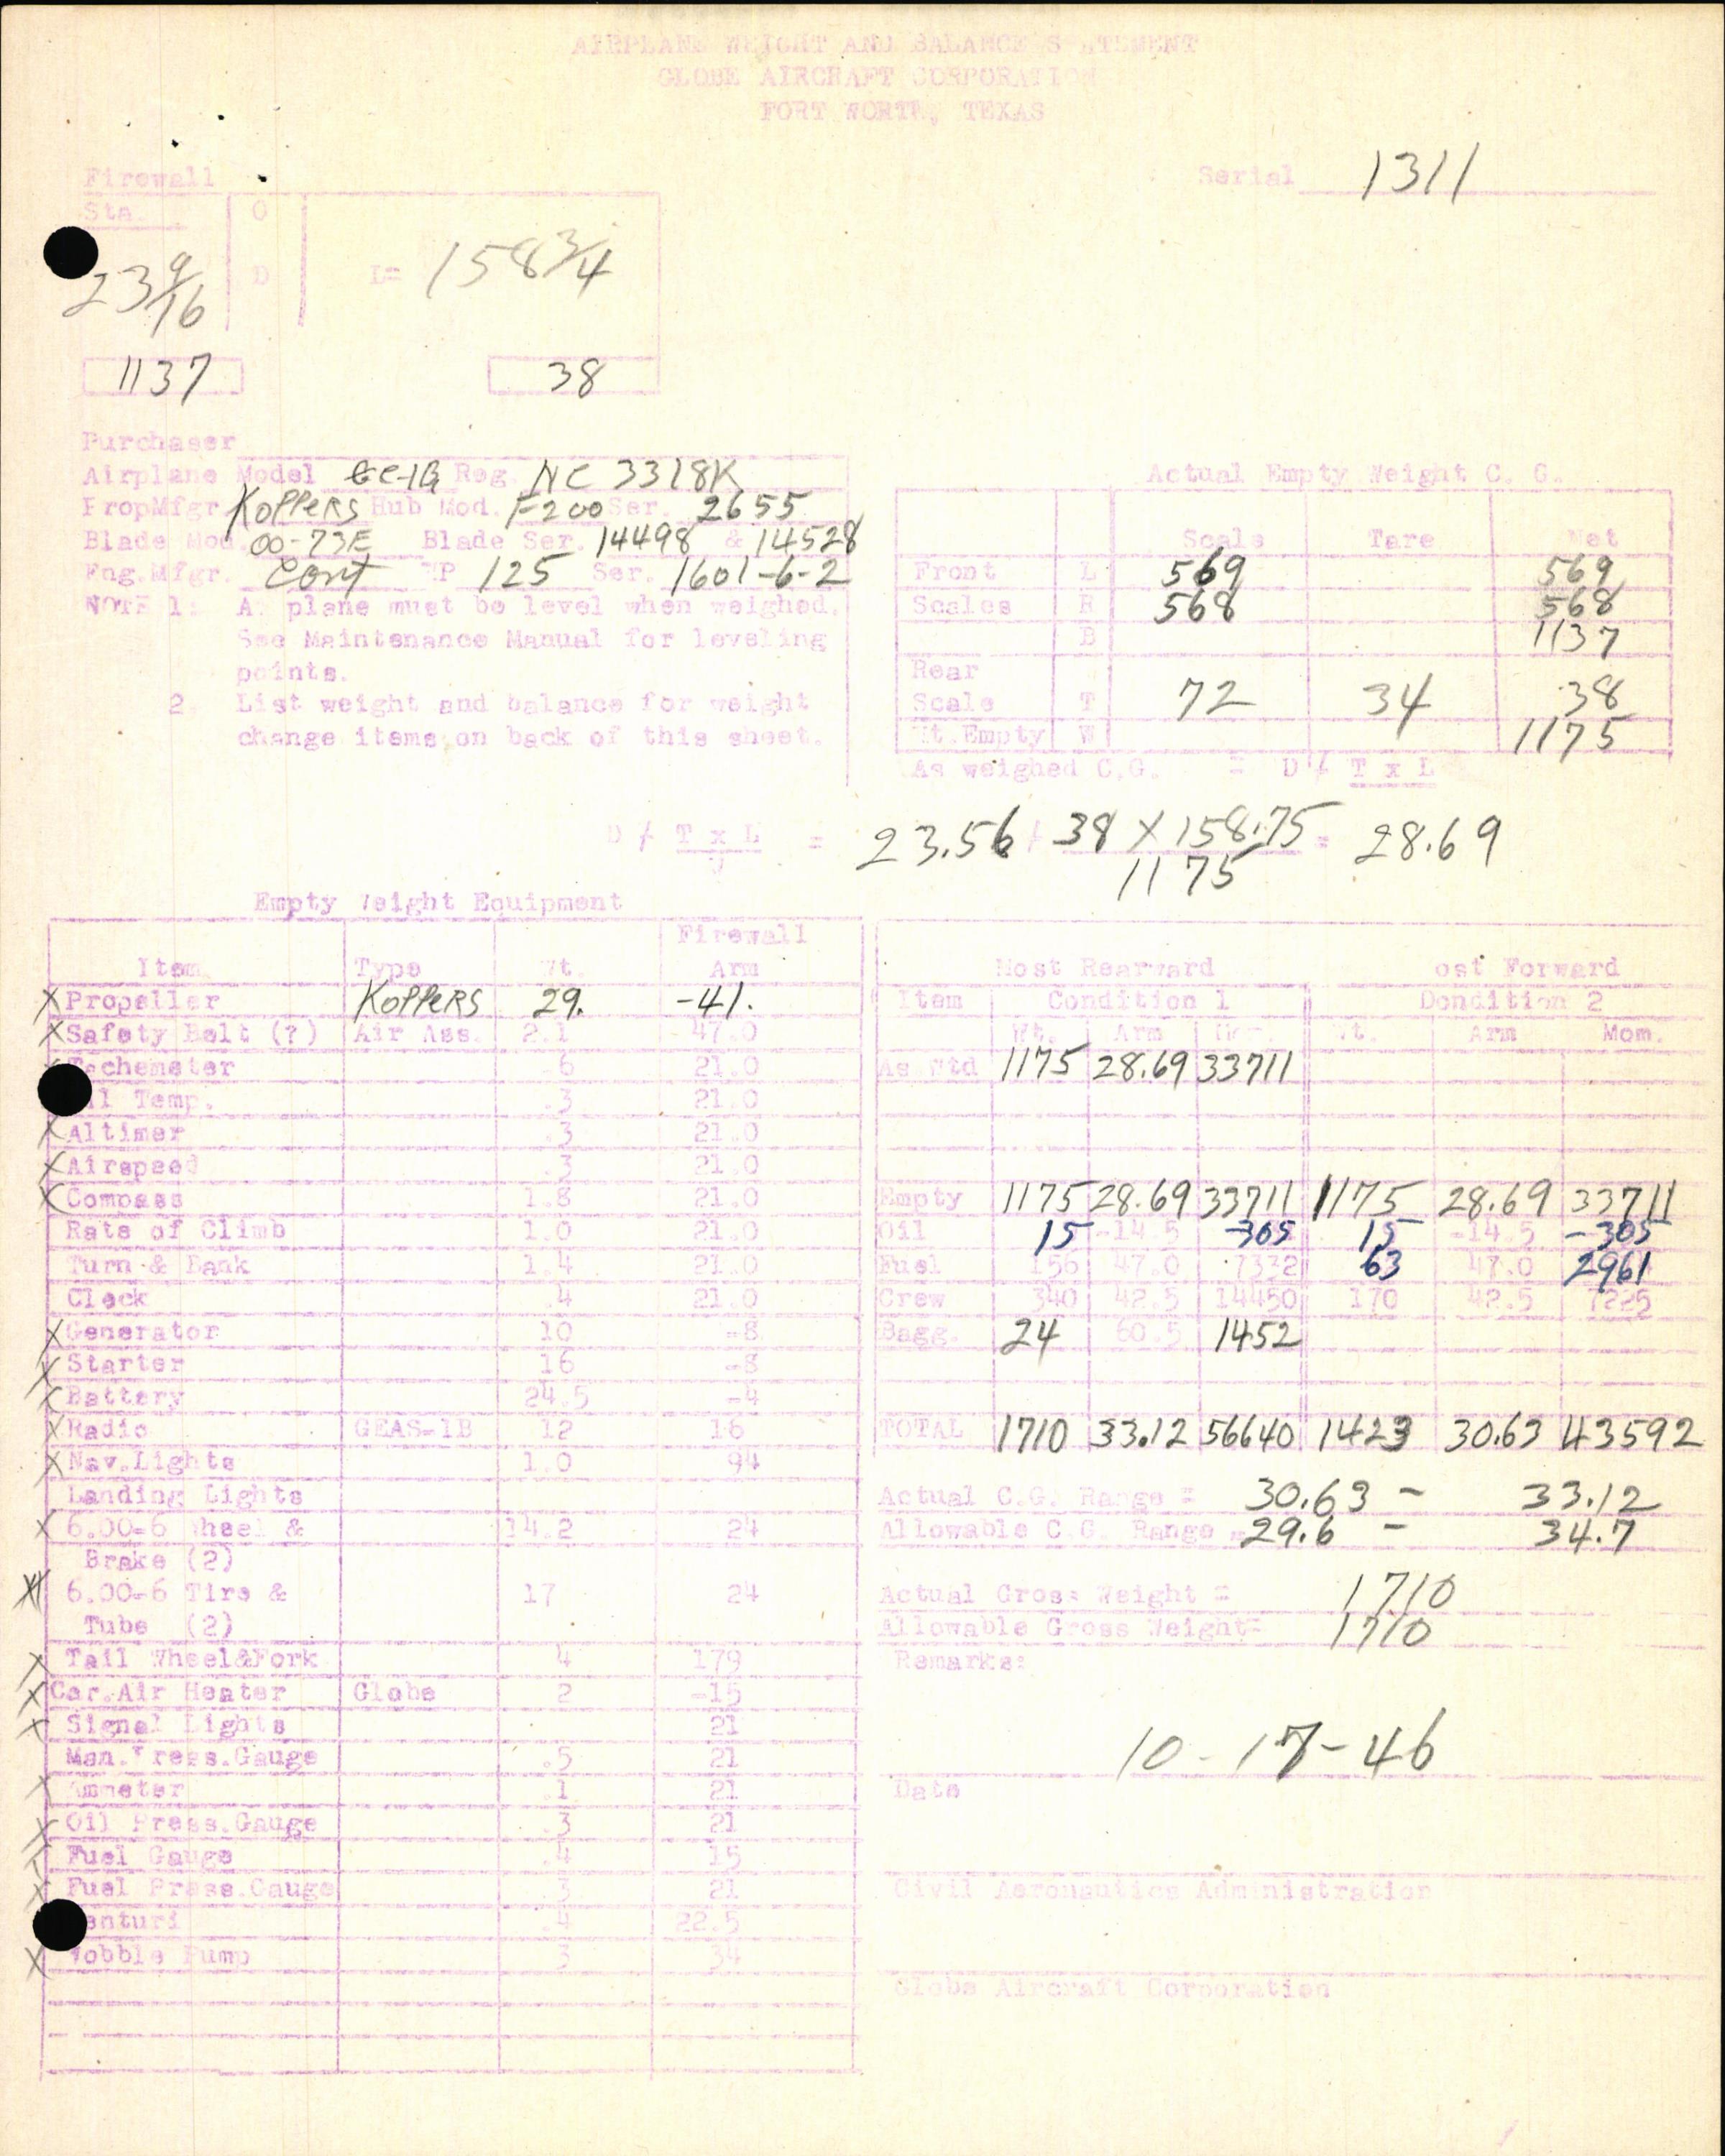 AIRPLANE WEIGHT AND BALANCE S ATEMENT
GLOBE AIRCRAFT CORPORATION
FORT WORTH, TEXAS
Serial 1311
Firewall
Sta. O
23 9/16 D L= 158 3/4
1137 38
Purchaser
Airplane Model GC-1B Reg. NC 3318K
PropMfgr Koppers Hub Mod. F200 Ser. 2655
Blade Mod. 00-73E Blade Ser. 14498 & 14528
Eng.Mfgr. Cont HP 125 Ser. 1601-6-2
NOTE 1: A plane must be level when weighed.
See Maintenance Manual for leveling
points.
2. List weight and balance for weight
change items on back of this sheet.
Actual Empty Weight C. G.
Scale Tare Net
Front L 569 569
Scales R 568 568
B 1137
Rear
Scale T 72 34 38
Wt.Empty W 1175
As weighed C.G. = D / T x L
D / T x L / W = 23.56 / 38 X 158.75 / 1175 = 28.69
Empty Weight Equipment
Firewall
Item Type Wt. Arm
X Propeller Koppers 29. -41.
X Safety Belt (?) Air Ass. 2.1 47.0
Tachemeter .6 21.0
Oil Temp. .3 21.0
X Altimer .3 21.0
X Airspeed .3 21.0
X Compass 1.8 21.0
Rate of Climb 1.0 21.0
Turn & Bank 1.4 21.0
Clock .4 21.0
X Generator 10 -8
X Starter 16 -8
X Battery 24.5 -4
X Radio GEAS-1B 12 16
X Nav.Lights 1.0 94
Landing Lights
X 6.00-6 Wheel & 14.2 24
Brake (2)
X 6.00-6 Tire & 17 24
Tube (2)
X Tail Wheel&Fork 4 179
X Car.Air Heater Globe 2 -15
X Signal Lights 21
Man.Press.Gauge .5 21
X Ammeter .1 21
X Oil Press.Gauge .3 21
X Fuel Gauge .4 15
X Fuel Press.Gauge .3 21
Venturi .4 22.5
X Wobble Pump 3 34
Most Rearward Most Forward
Item Condition 1 Dondition 2
Wt. Arm Mom. Wt. Arm Mom.
As Wtd 1175 28.69 33711
Empty 1175 28.69 33711 1175 28.69 33711
Oil 15 -14.5 -305 15 -14.5 -305
Fuel 156 47.0 7332 63 47.0 2961
Crew 340 42.5 14450 170 42.5 7225
Bagg. 24 60.5 1452
TOTAL 1710 33.12 56640 1423 30.63 43592
Actual C.G. Range = 30.63 - 33.12
Allowable C.G. Range = 29.6 - 34.7
Actual Gross Weight = 1710
Allowable Gross Weight= 1710
Remarks:
10-17-46
Date
Civil Aeronautics Administration
Globe Aircraft Corporation